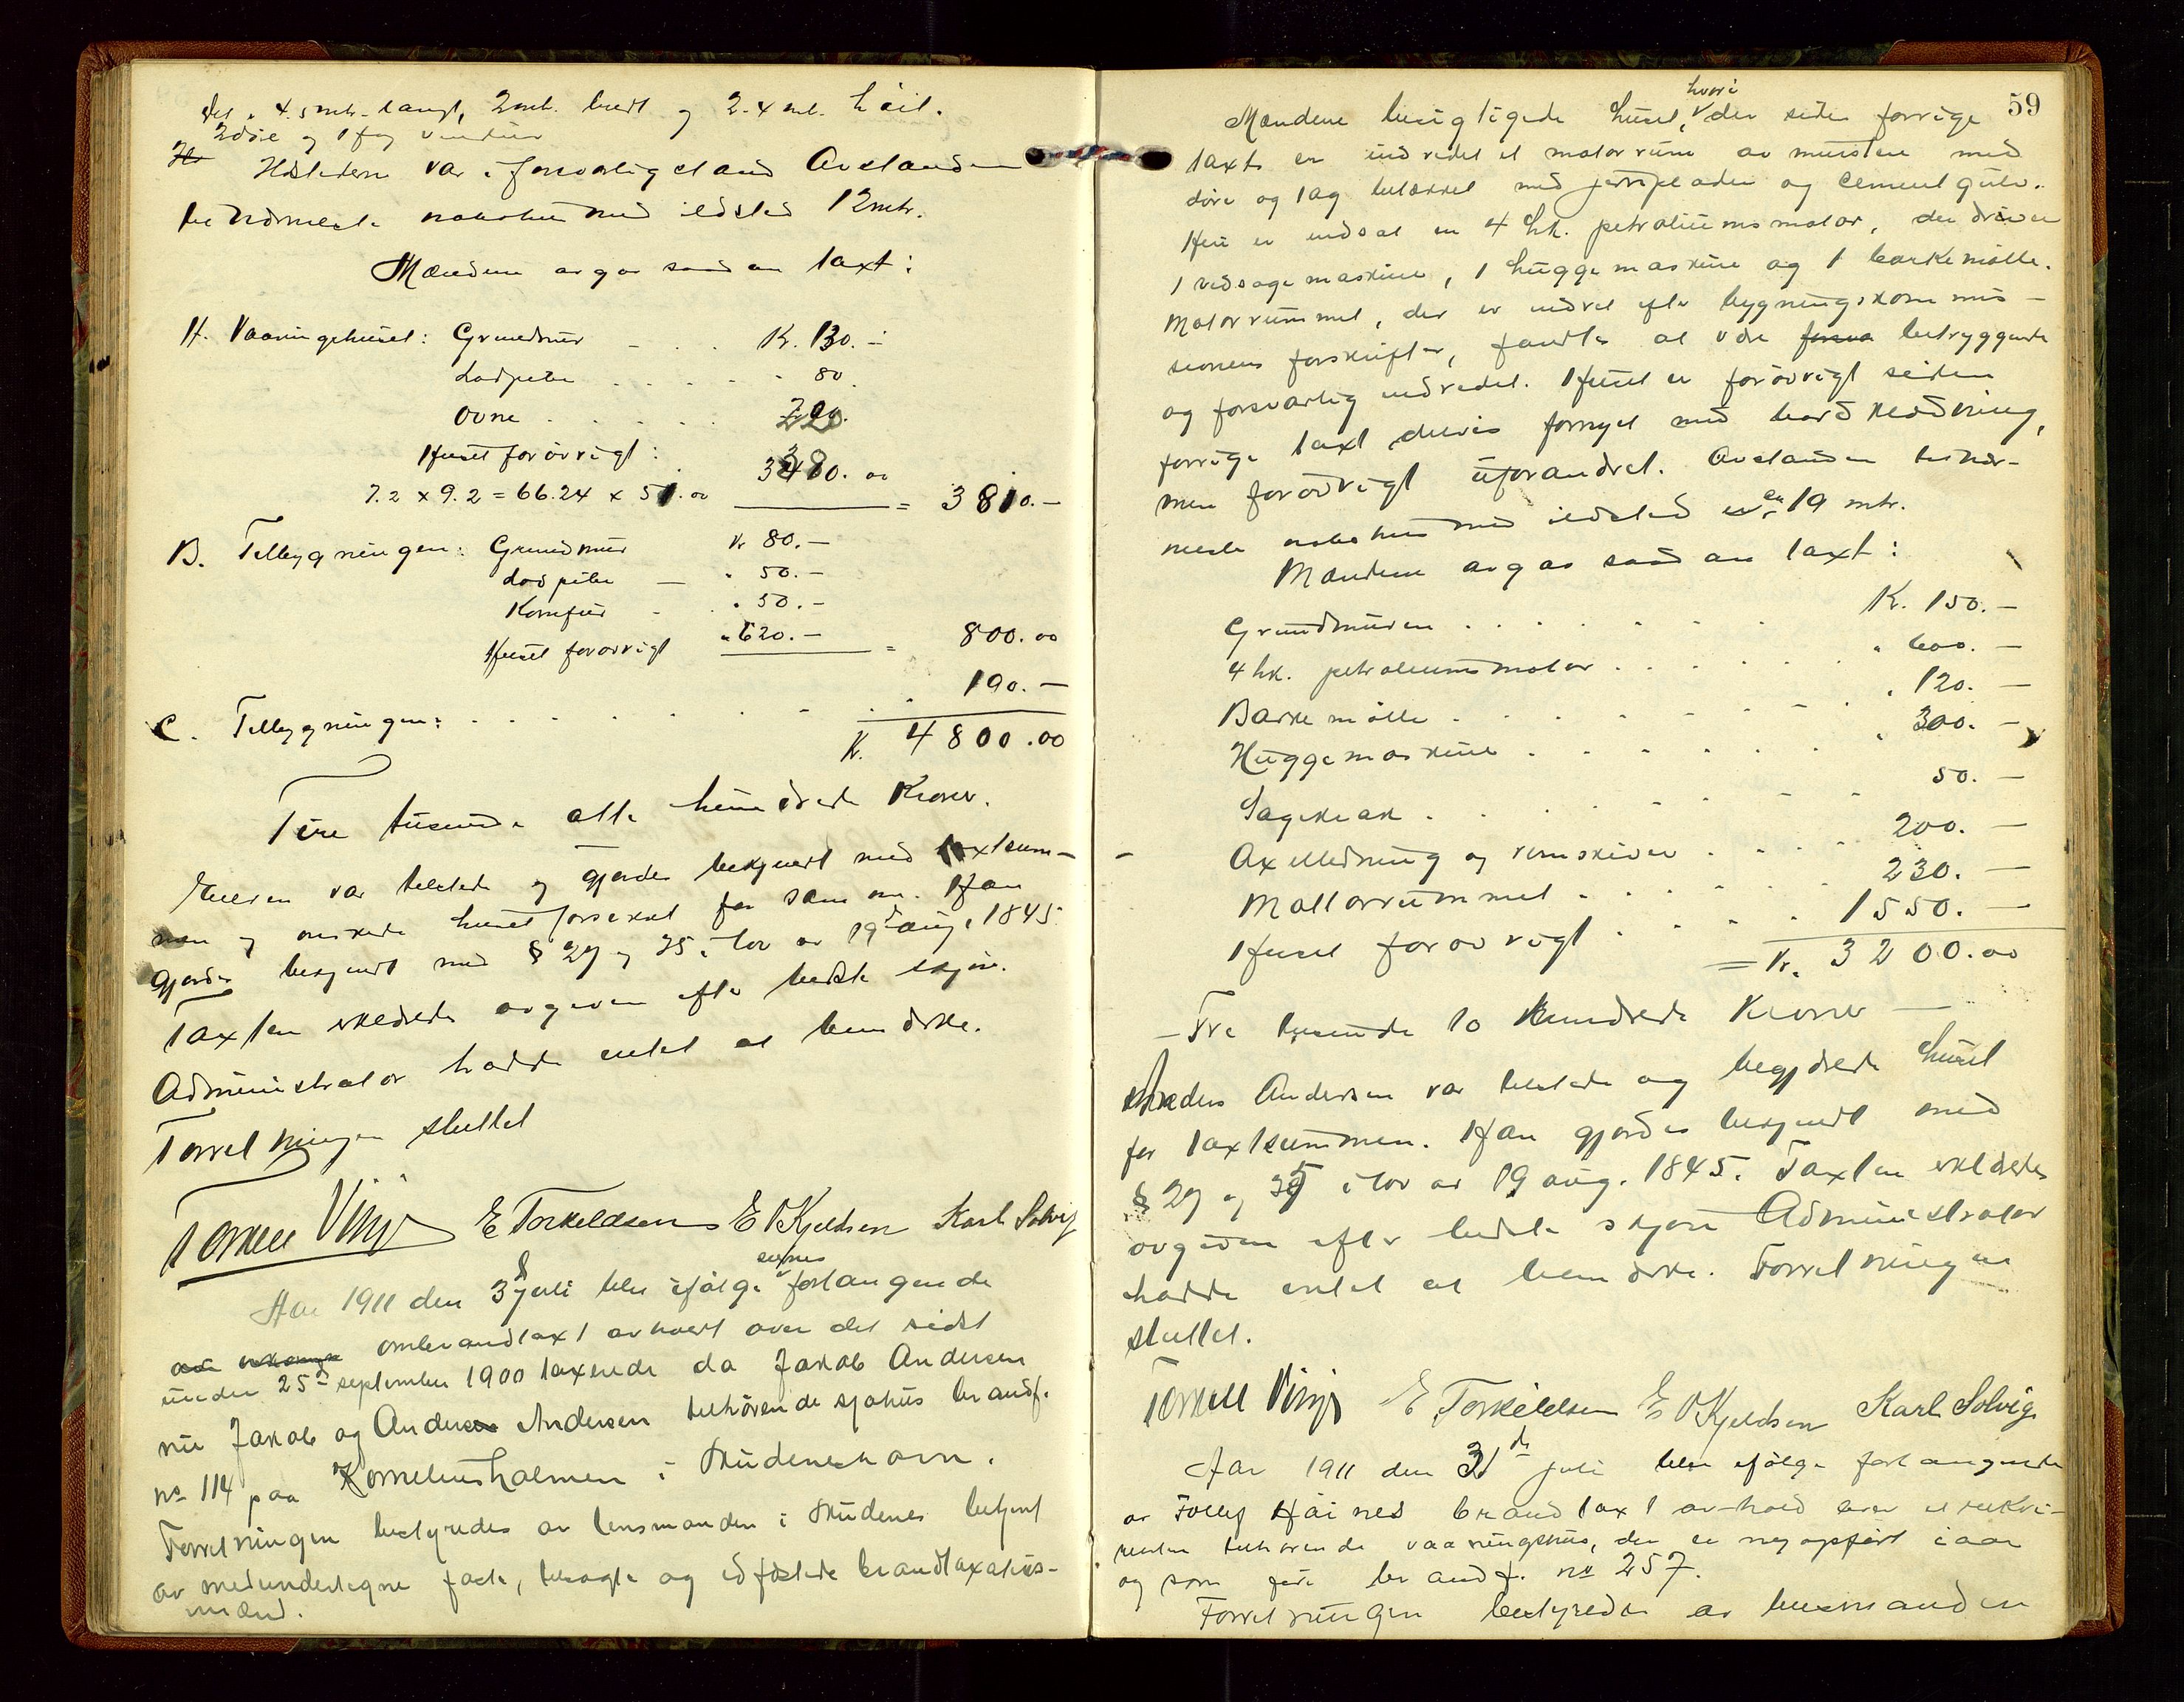 4.5 mtr. langt, 2 mtr. bredt og 2.4 mtr. høit.
2 døre og 1 fag vinduer
Ildstederne var i forsvarlig stand Avstanden
til nærmeste nabohus med ildsted 12 mtr.
Mændene avgav saadan taxt:
A. Vaaningshuset: Grundmur - . . Kr. 130. -
Ladpibe . . . . . " 80.
Ovne . . . . . 220.
Huset forøvrigt:
7.2 x 9.2 = 66.24 x 51.00 3380.00 = 3810.-
B. Tilbygningen: Grundmur Kr 80.-
Ladpibe - " 50.-
Komfur - " 50.-
Huset forøvrigt " 620.- = 800.00
C. Tilbygningen: . . . . . . 190.-
Kr. 4800.00
Fire tusende otte hundrede Kroner.
Eieren var tilstede og gjordes bekjendt med taxtsum-
men og ønskede huset forsikret for samme. Han
gjordes bekjendt med § 27 og 35 i lov av 19de aug. 1845
Taxten erklædes avgiven efter bedste skjøn.
Administrator hadde intet at bemærke.
Forretningen sluttet
Torkell Vinje E Torkeldsen E O Kjeldsen Karl Solvig
Aar 1911 den 3 juli blev ifølge eiernes forlangende
ombrandtaxt avholdt over det sidst
under 25de september 1900 taxerede da Jakob Andersen
nu Jakob og Anders Andersen tilhørende sjøhus brandf.
no 114 paa Korneliusholmen i Skudeneshavn.
Forretningen bestyredes av lensmanden i Skudenes betjent
av medundertegne faste, besagte og edfæstede brandtaxations-
mænd.
59
Mændene besigtigede huset, hvori der siden forrige
taxt er indredet et motorrum av mursten med
døre og tag beklædt med jernplader og cementgulv.
Heri er indsat en 4 hk. petroliumsmotor, der driver
1 vedsagemaskine, 1 huggemaskine og 1 barkemølle.
Motorrummet, der er indret efter bygningskommis-
sionens forskrifter, fandtes at være betryggende
og forsvarlig indredet. Huset er forøvrigt siden
forrige taxt delvis fornyet med bordklædning,
men forøvrigt uforandret. Avstanden til nær-
meste nabohus med ildsted er 19 mtr.
Mændene avgav saadan taxt:
Grundmuren . . . . . . Kr. 150. -
4 hk. petroleumsmotor . . . . . " 600. -
Barkemølle . . . . . . . " 120. -
Huggemaskine . . . . . . " 300. -
Sagekrak . . . . . . . 50. -
Axelledning og remskiver . . . . 200. -
Mottorrummet . . . . . . 230. -
Huset forøvrigt . . . . 1550. -
= Kr. 3200.00
- Tre tusende to hundrede Kroner -
Anders Andersen var tilstede og begjærede huset
for taxtsummen. Han gjordes bekjendt med
§ 27 og 35 i lov av 19 aug. 1845. Taxten erklædes
avgiven efter bedste skjøn Administrator
hadde intet at bemærke. Forretningen
sluttet.
Torkell Vinje E Torkeldsen E O Kjeldsen Karl Solvig
Aar 1911 den 31de juli blev ifølge forlangende
av Tollef Haines brandtaxt avhold over et rekvi-
renten tilhørende vaaningshus, der er nyopført i aar
og som faar brandf. no 257.
Forretningen bestyredes av lensmanden